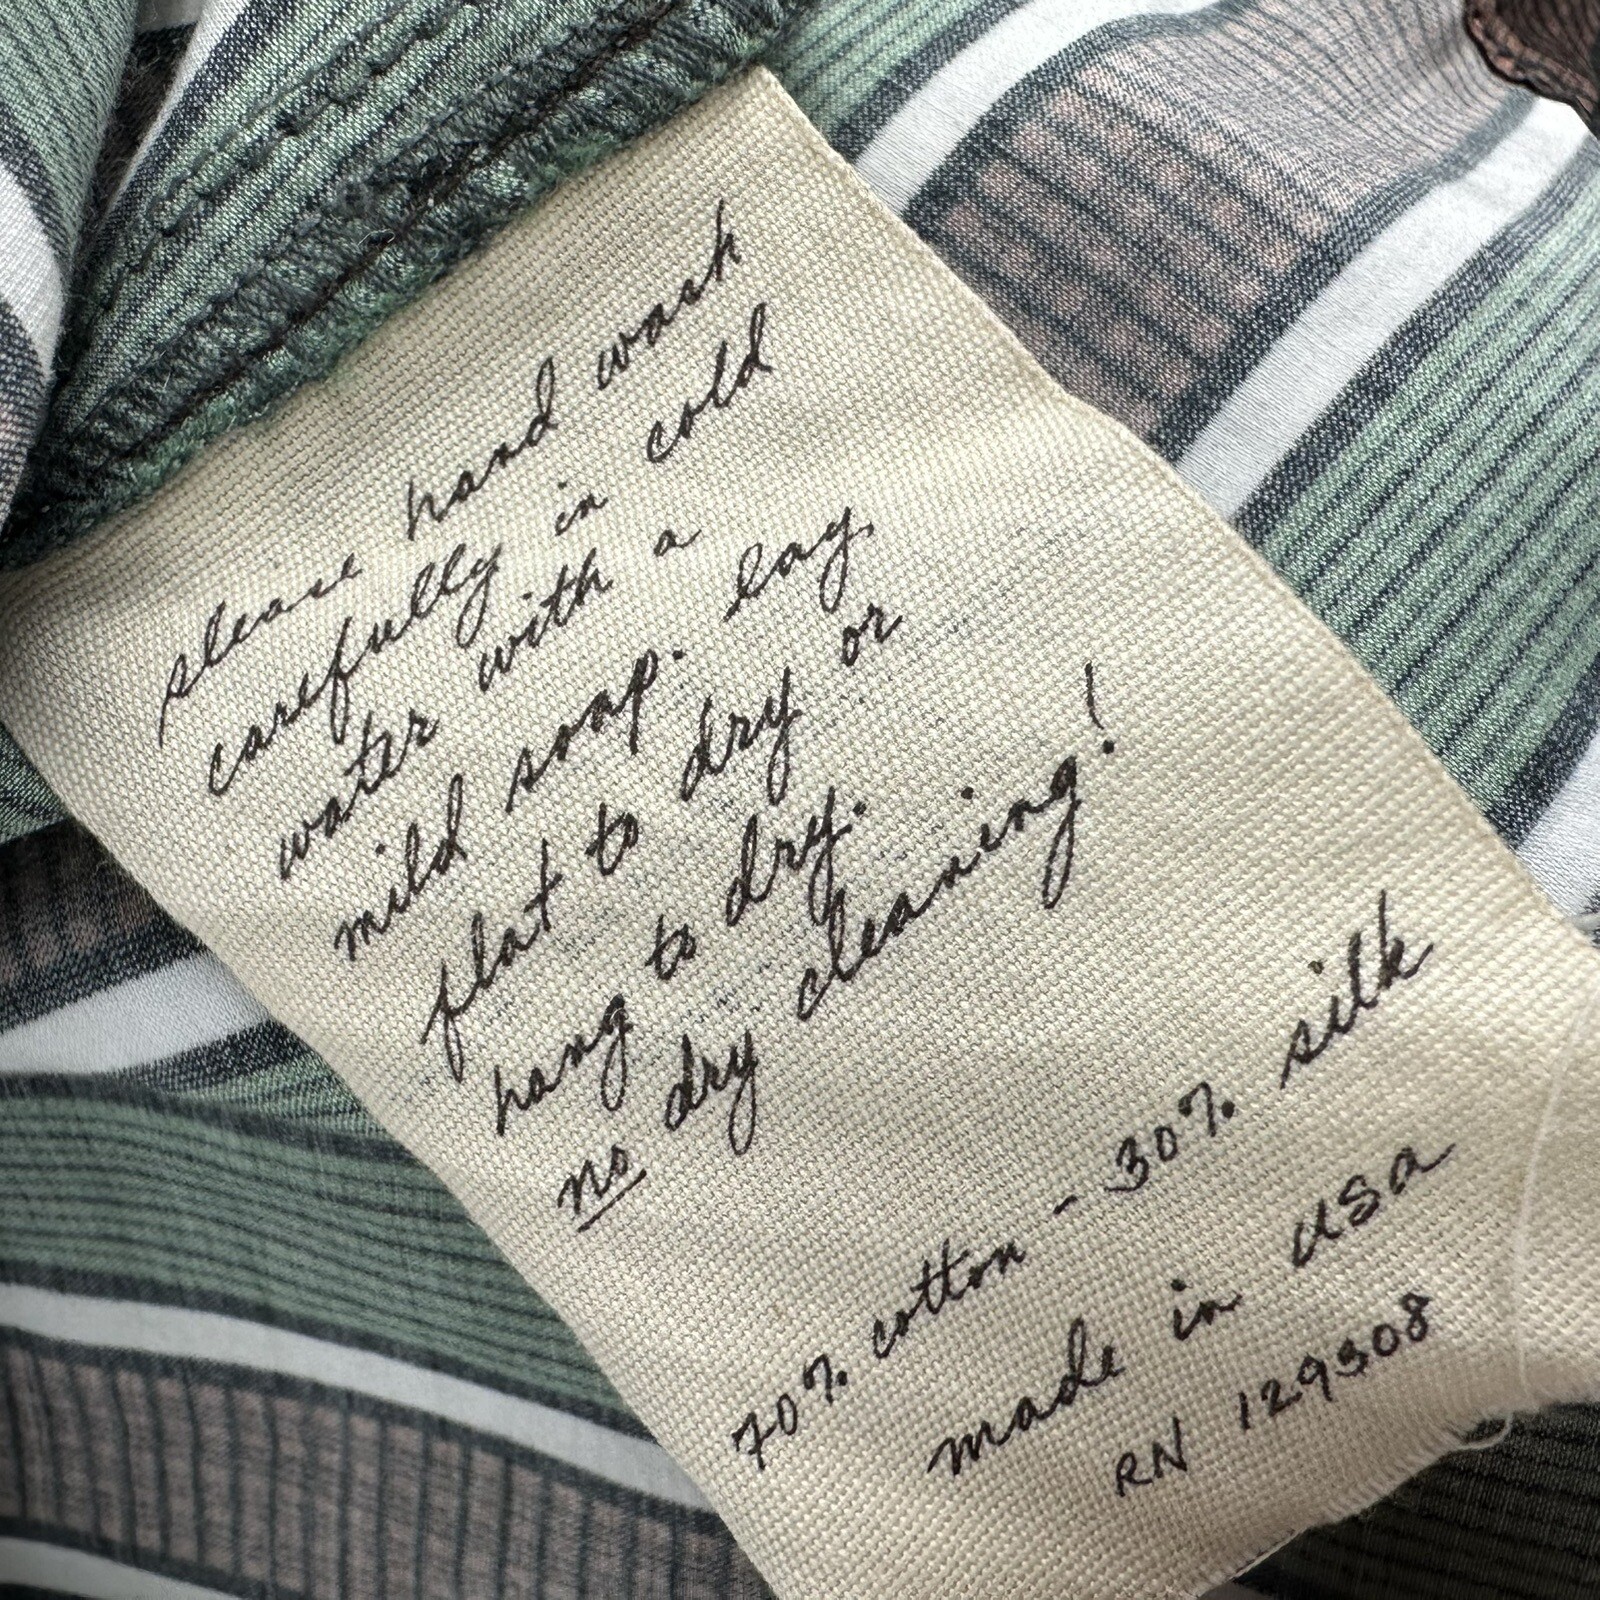 please hand wash
carefully in cold
water with a
mild soap. lay
flat to dry or
hang to dry.
no dry cleaning!
70% cotton - 30% silk
made in usa
RN 129308